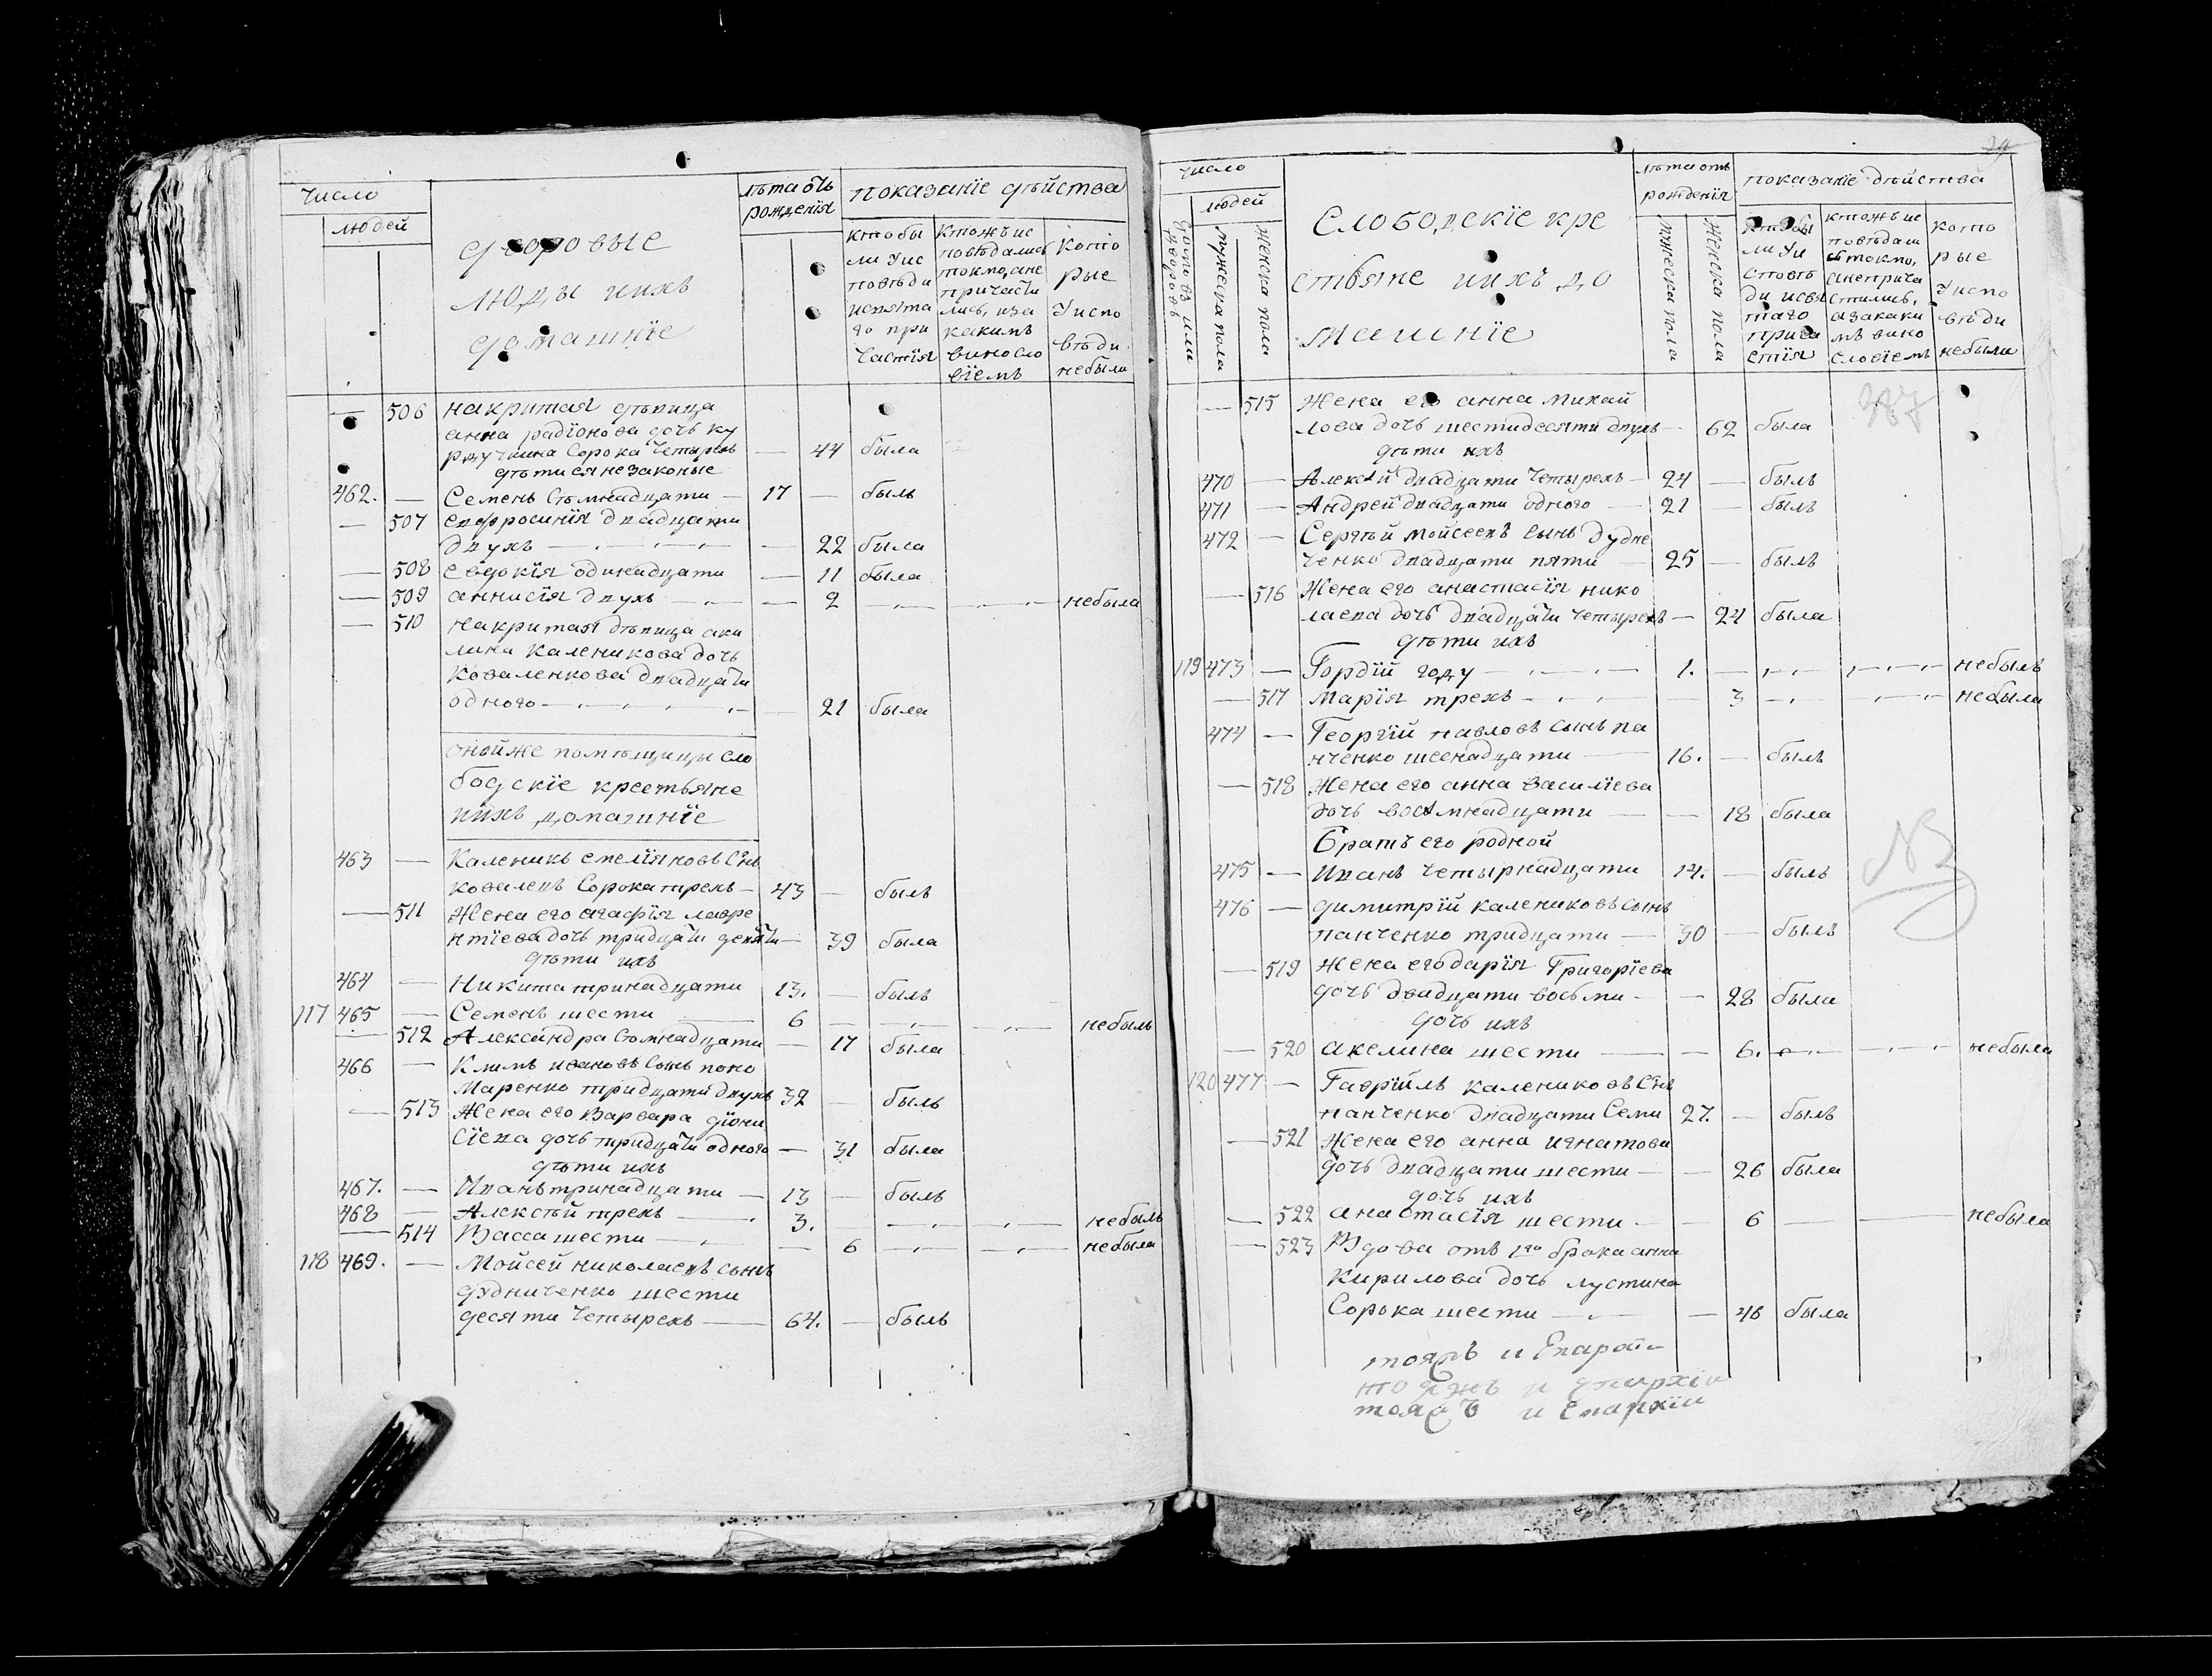 число
людей
дворовые
люды ихъ
домашніе
лѣта отъ
рожденія
показаніе дѣйства
кто бы
ли у ис
повѣди
и свята
го при
частія
кто жъ ис
повѣдались
токмо, а не
причасти
лись, и за
какимъ
винословіемъ
кото
рые
у испо
вѣди
небыли
— 506 накритая дѣвица
анна радіонова дочь ку
рдучкина сорока четырехъ — 44 была
дѣти ея незаконые
462. — Семенъ сѣмнадцати — 17 — былъ
— 507 евфросинія двадцати
двухъ — 22 была
— 508 евдокія одинадцати — 11 была
— 509 аннисія двухъ — 2 небыла
— 510 накритая дѣвица аку
лина каленикова дочь
коваленкова двадцати
одного — 21 была
онойже помѣщицы сло
бодскіе крестьяне
ихъ домашніе
463 — Каленикъ емеліяновъ снъ
ковалевъ сорока трехъ — 43 — былъ
— 511 Жена его агафія лавре
нтіева дочь тридцати девяти — 39 была
дѣти ихъ
464 — Никита тринадцати 13. — былъ
117 465 — Семенъ шести 6 небылъ
— 512 Александра сѣмнадцати — 17 была
466 — Климъ ивановъ сынъ поно
маренко тридцати двухъ 32 — былъ
— 513 Жена его Варвара діони
сіева дочь тридцати одного — 31 была
дѣти ихъ
467. — Иванъ тринадцати — 13 — былъ
468 — Алексѣй трехъ — 3. небылъ
— 514 Васса шести — 6 небыла
118 469. — Мойсей николаевъ сынъ
дудниченко шести
десяти четырехъ — 64. — былъ
24
число
людей
мужеска пола
женска пола
Слободскіе кре
стьяне ихъ до
машніе
лѣта отъ
рожденія
мужеска пола
женска пола
показаніе дѣйства
кто бы
ли у и
сповѣ
ди и свя
таго
прича
стія
кто жъ ис
повѣдали
сь токмо,
а неприча
стились,
а за каки
мъ вино
словіемъ
кото
рые
у испо
вѣди
небыли
387
— 515 Жена его анна михай
лова дочь шестидесяти двухъ — 62 была
дѣти ихъ
470 — Алексѣй двадцати четырехъ — 24 — былъ
471 — Андрей двадцати одного — 21 — былъ
472 — Сергѣй мойсеевъ сынъ дудне
ченко двадцати пяти — 25 — былъ
— 516 Жена его анастасія нико
лаева дочь двадцати четырехъ — 24 была
дѣти ихъ
119 473 — Гордій году — 1. — небылъ
— 517 Марія трехъ — 3 небыла
474 — Георгій павловъ сынъ па
нченко шеснадцати — 16. — былъ
— 518 Жена его анна василіева
дочь восѣмнадцати — 18 была
братъ его родной
475 — Иванъ четырнадцати 14. — былъ
476 — димитрій калениковъ сынъ
панченко тридцати — 30 — былъ
— 519 Жена его дарія Григоріева
дочь двадцати восьми — 28 была
дочь ихъ
— 520 акелина шести — 6. небыла
120 477 — Гавріилъ калениковъ снъ
панченко двадцати семи 27. — былъ
— 521 Жена его анна игнатова
дочь двадцати шести — 26 была
дочь ихъ
— 522 анастасія шести — 6 небыла
— 523 Вдова отъ 1го брака анна
кирилова дочь лустина
сорока шести — 46 была
тояжъ и
тояжъ и епархіи
тояжъ и Епархіи